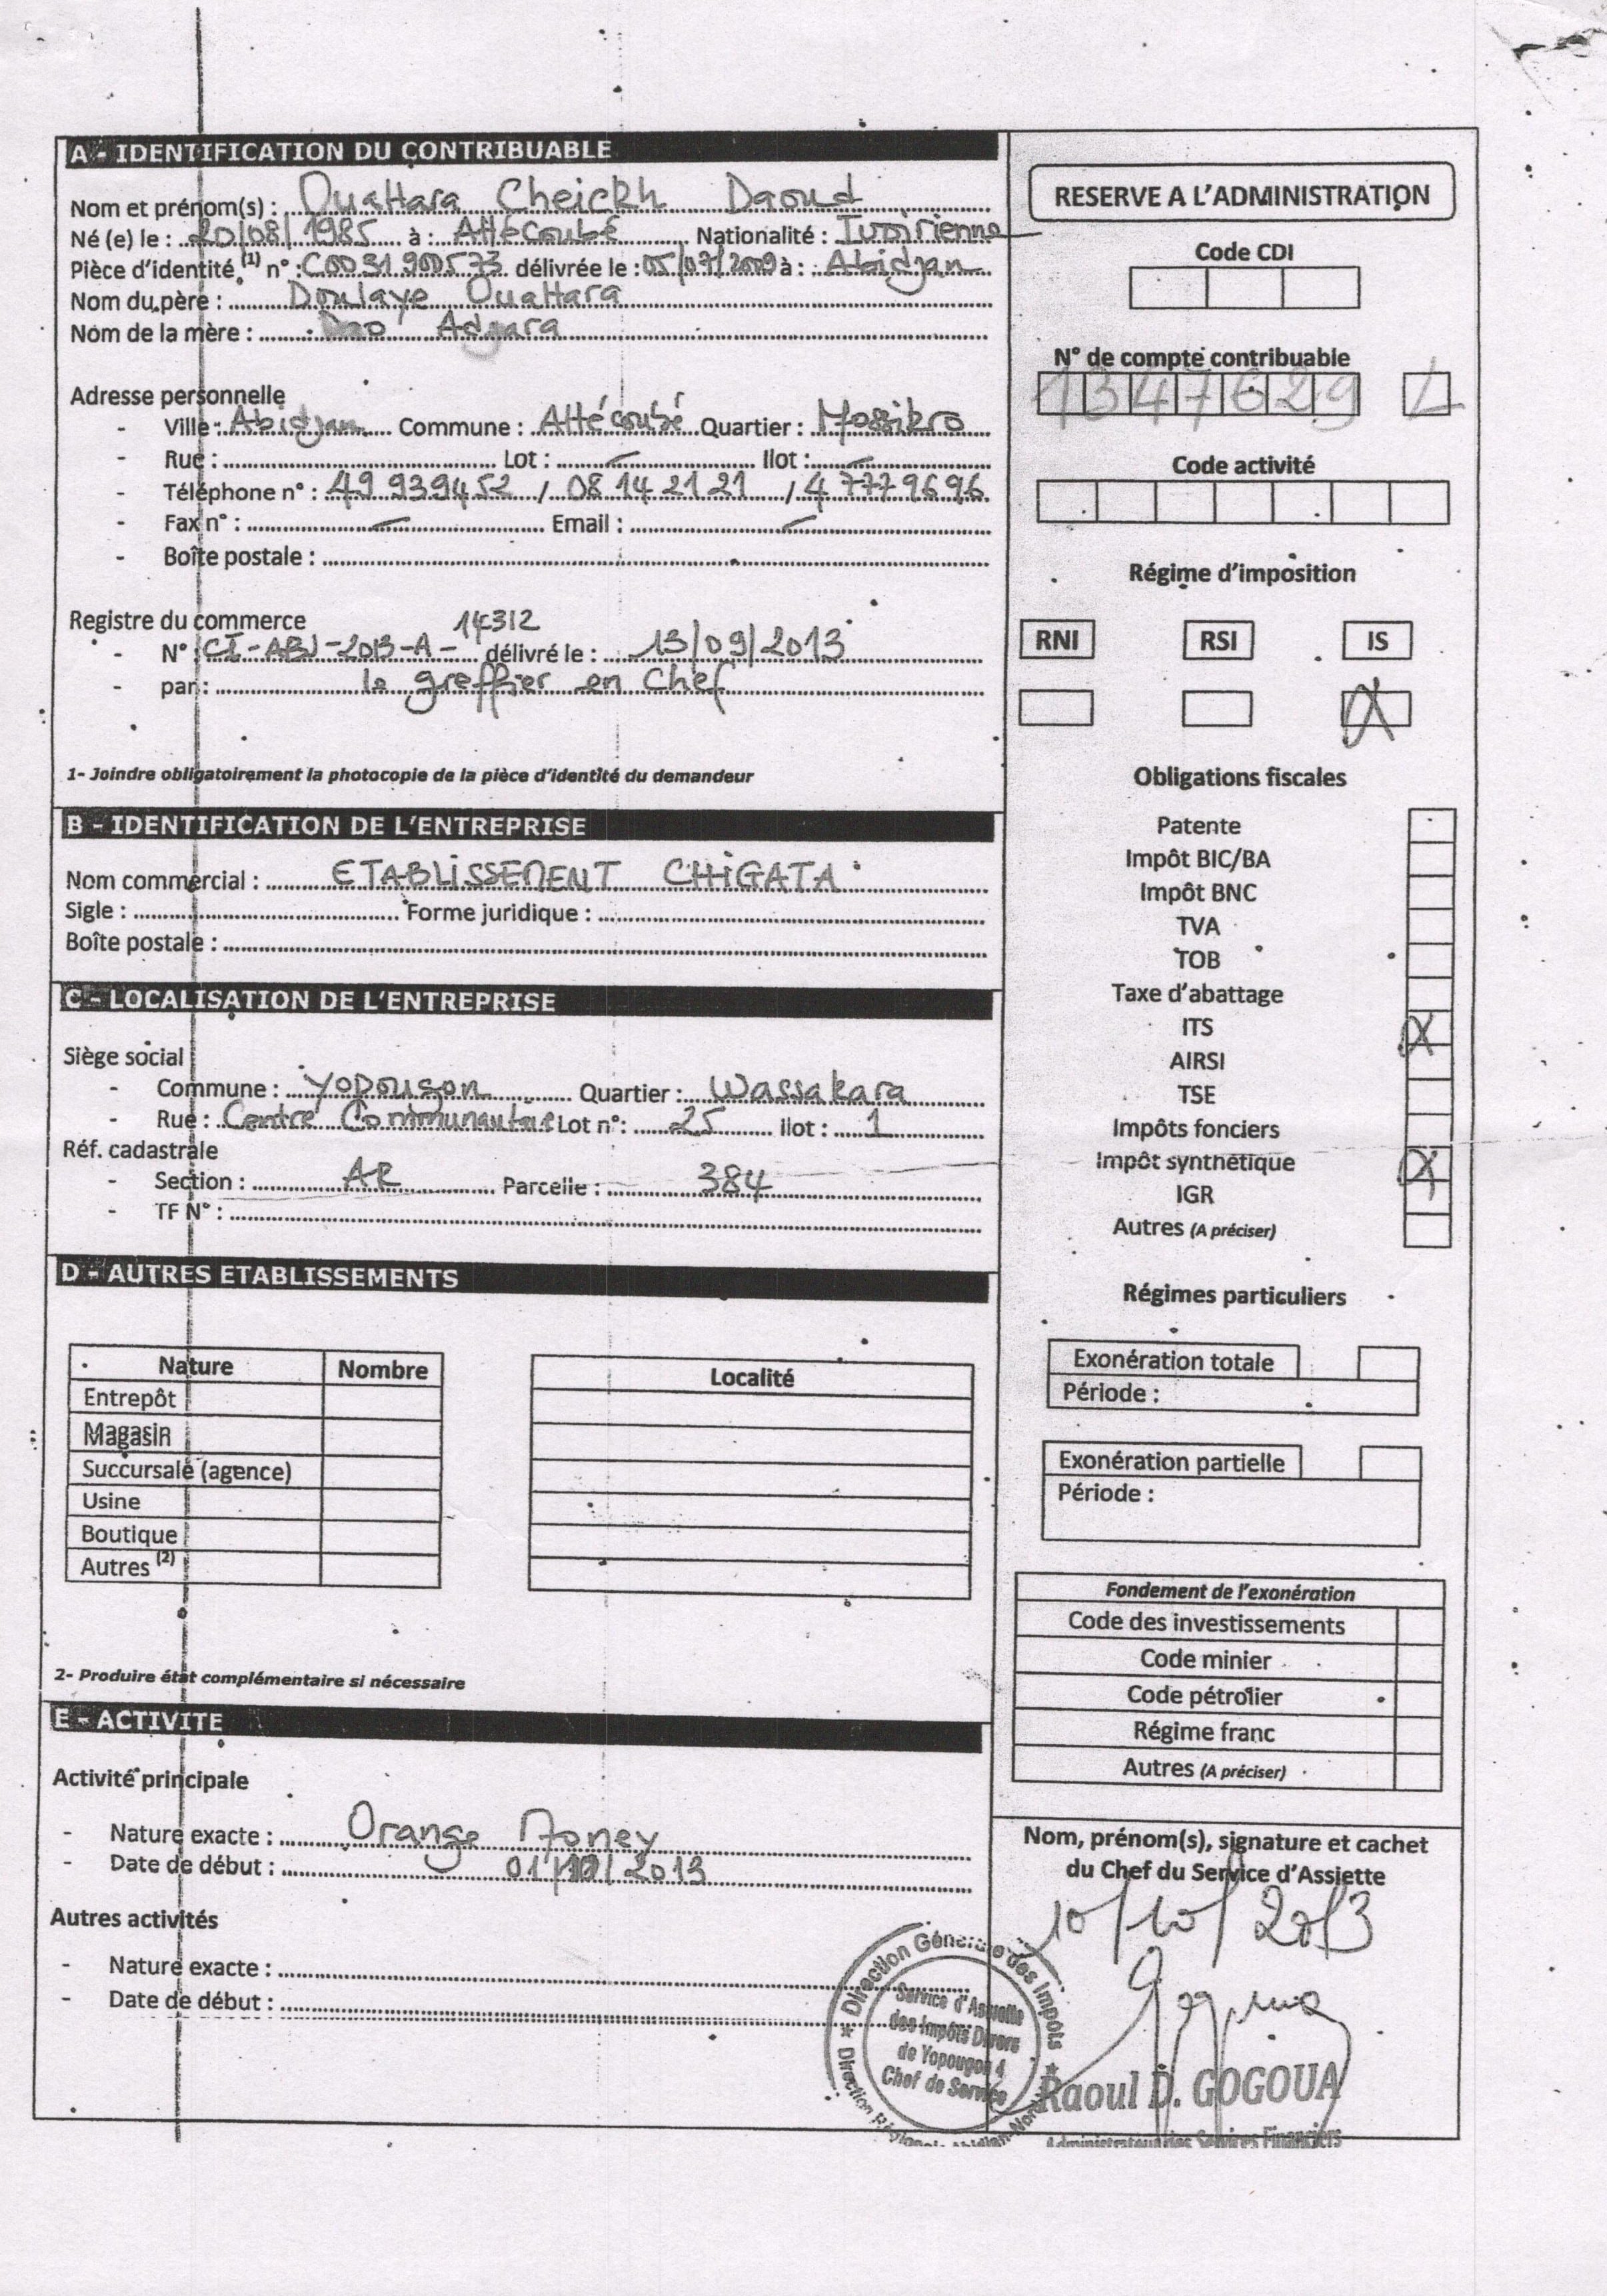 A - IDENTIFICATION DU CONTRIBUABLE
Nom et prénom(s) : Ouattara Cheickh Daoud
Né (e) le : 20/08/1985 à : Attécoubé Nationalité : Ivoirienne
Pièce d'identité (1) n° : C0031900573 délivrée le : 05/07/2009 à : Abidjan
Nom du père : Doulaye Ouattara
Nom de la mère : Dao Adjara
Adresse personnelle
- Ville : Abidjan Commune : Attécoubé Quartier : Mossikro
- Rue : Lot : Ilot :
- Téléphone n° : 49 939452 / 08 14 21 21 / 47779696
- Fax n° : Email :
- Boîte postale :
Registre du commerce
- N° CI-ABJ-2013-A-14312 délivré le : 13/09/2013
- par : le greffier en Chef
1- Joindre obligatoirement la photocopie de la pièce d'identité du demandeur
B - IDENTIFICATION DE L'ENTREPRISE
Nom commercial : ETABLISSEMENT CHIGATA
Sigle : Forme juridique :
Boîte postale :
C - LOCALISATION DE L'ENTREPRISE
Siège social
- Commune : Yopougon Quartier : Wassakara
- Rue : Centre Communautaire Lot n° : 25 Ilot : 1
Réf. cadastrale
- Section : AR Parcelle : 384
- TF N° :
D - AUTRES ETABLISSEMENTS
Nature Nombre Localité
Entrepôt
Magasin
Succursale (agence)
Usine
Boutique
Autres (2)
2- Produire état complémentaire si nécessaire
E - ACTIVITE
Activité principale
- Nature exacte : Orange Money
- Date de début : 01/10/2013
Autres activités
- Nature exacte :
- Date de début :
RESERVE A L'ADMINISTRATION
Code CDI
N° de compte contribuable
1347629 L
Code activité
Régime d'imposition
RNI RSI IS
X
Obligations fiscales
Patente
Impôt BIC/BA
Impôt BNC
TVA
TOB
Taxe d'abattage
ITS X
AIRSI
TSE
Impôts fonciers
Impôt synthétique X
IGR
Autres (A préciser)
Régimes particuliers
Exonération totale
Période :
Exonération partielle
Période :
Fondement de l'exonération
Code des investissements
Code minier
Code pétrolier
Régime franc
Autres (A préciser)
Nom, prénom(s), signature et cachet
du Chef du Service d'Assiette
10/10/2013
Raoul D. GOGOUA
Administrateur des Services Financiers
Direction Générale des Impôts
Service d'Assiette
des Impôts Divers
de Yopougon 4
Chef de Service
Direction Régionale Abidjan Nord